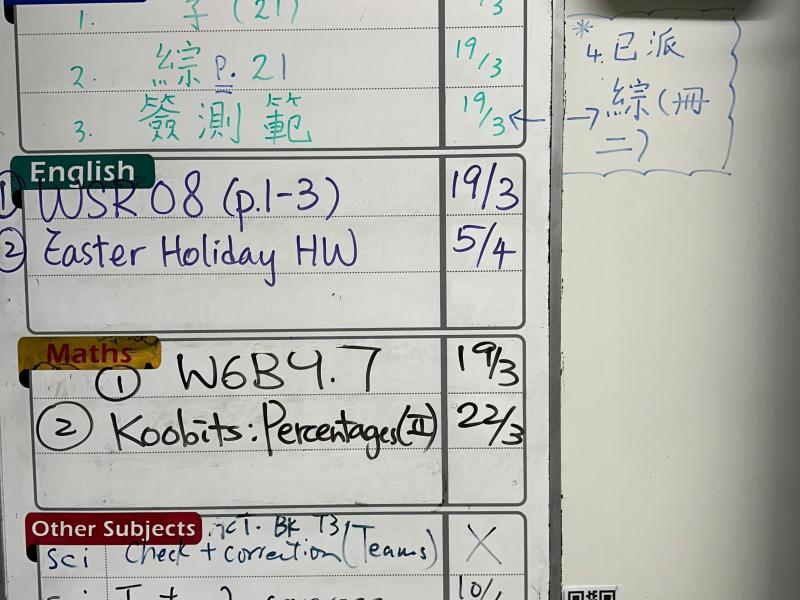 1. 子 (21)
2. 綜 p. 21 19/3
3. 簽測範 19/3
* 4. 已派
綜(冊
二)
English
① WSR 08 (p.1-3) 19/3
② Easter Holiday HW 5/4
Maths
① W6B4.7 19/3
② Koobits: Percentages(II) 22/3
Other Subjects
ACT. BK T3
Sci Check + correction (Teams) X